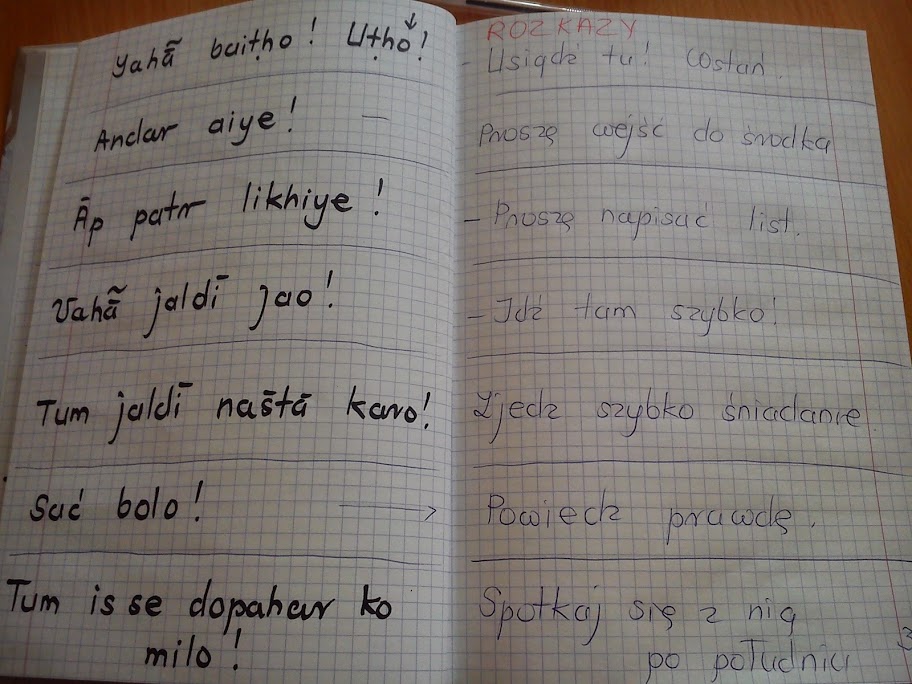 Yahā̃ baiṭho! Uṭho!
Andar aiye! —
Āp patr likhiye!
Vahā̃ jaldī jao!
Tum jaldī naštā karo!
Sać bolo! →
Tum is se dopahar ko
milo!
ROZKAZY
- Usiądź tu! Wstań.
Proszę wejść do środka
- Proszę napisać list.
- Idź tam szybko!
Zjedz szybko śniadanie.
Powiedz prawdę.
Spotkaj się z nią
po południu